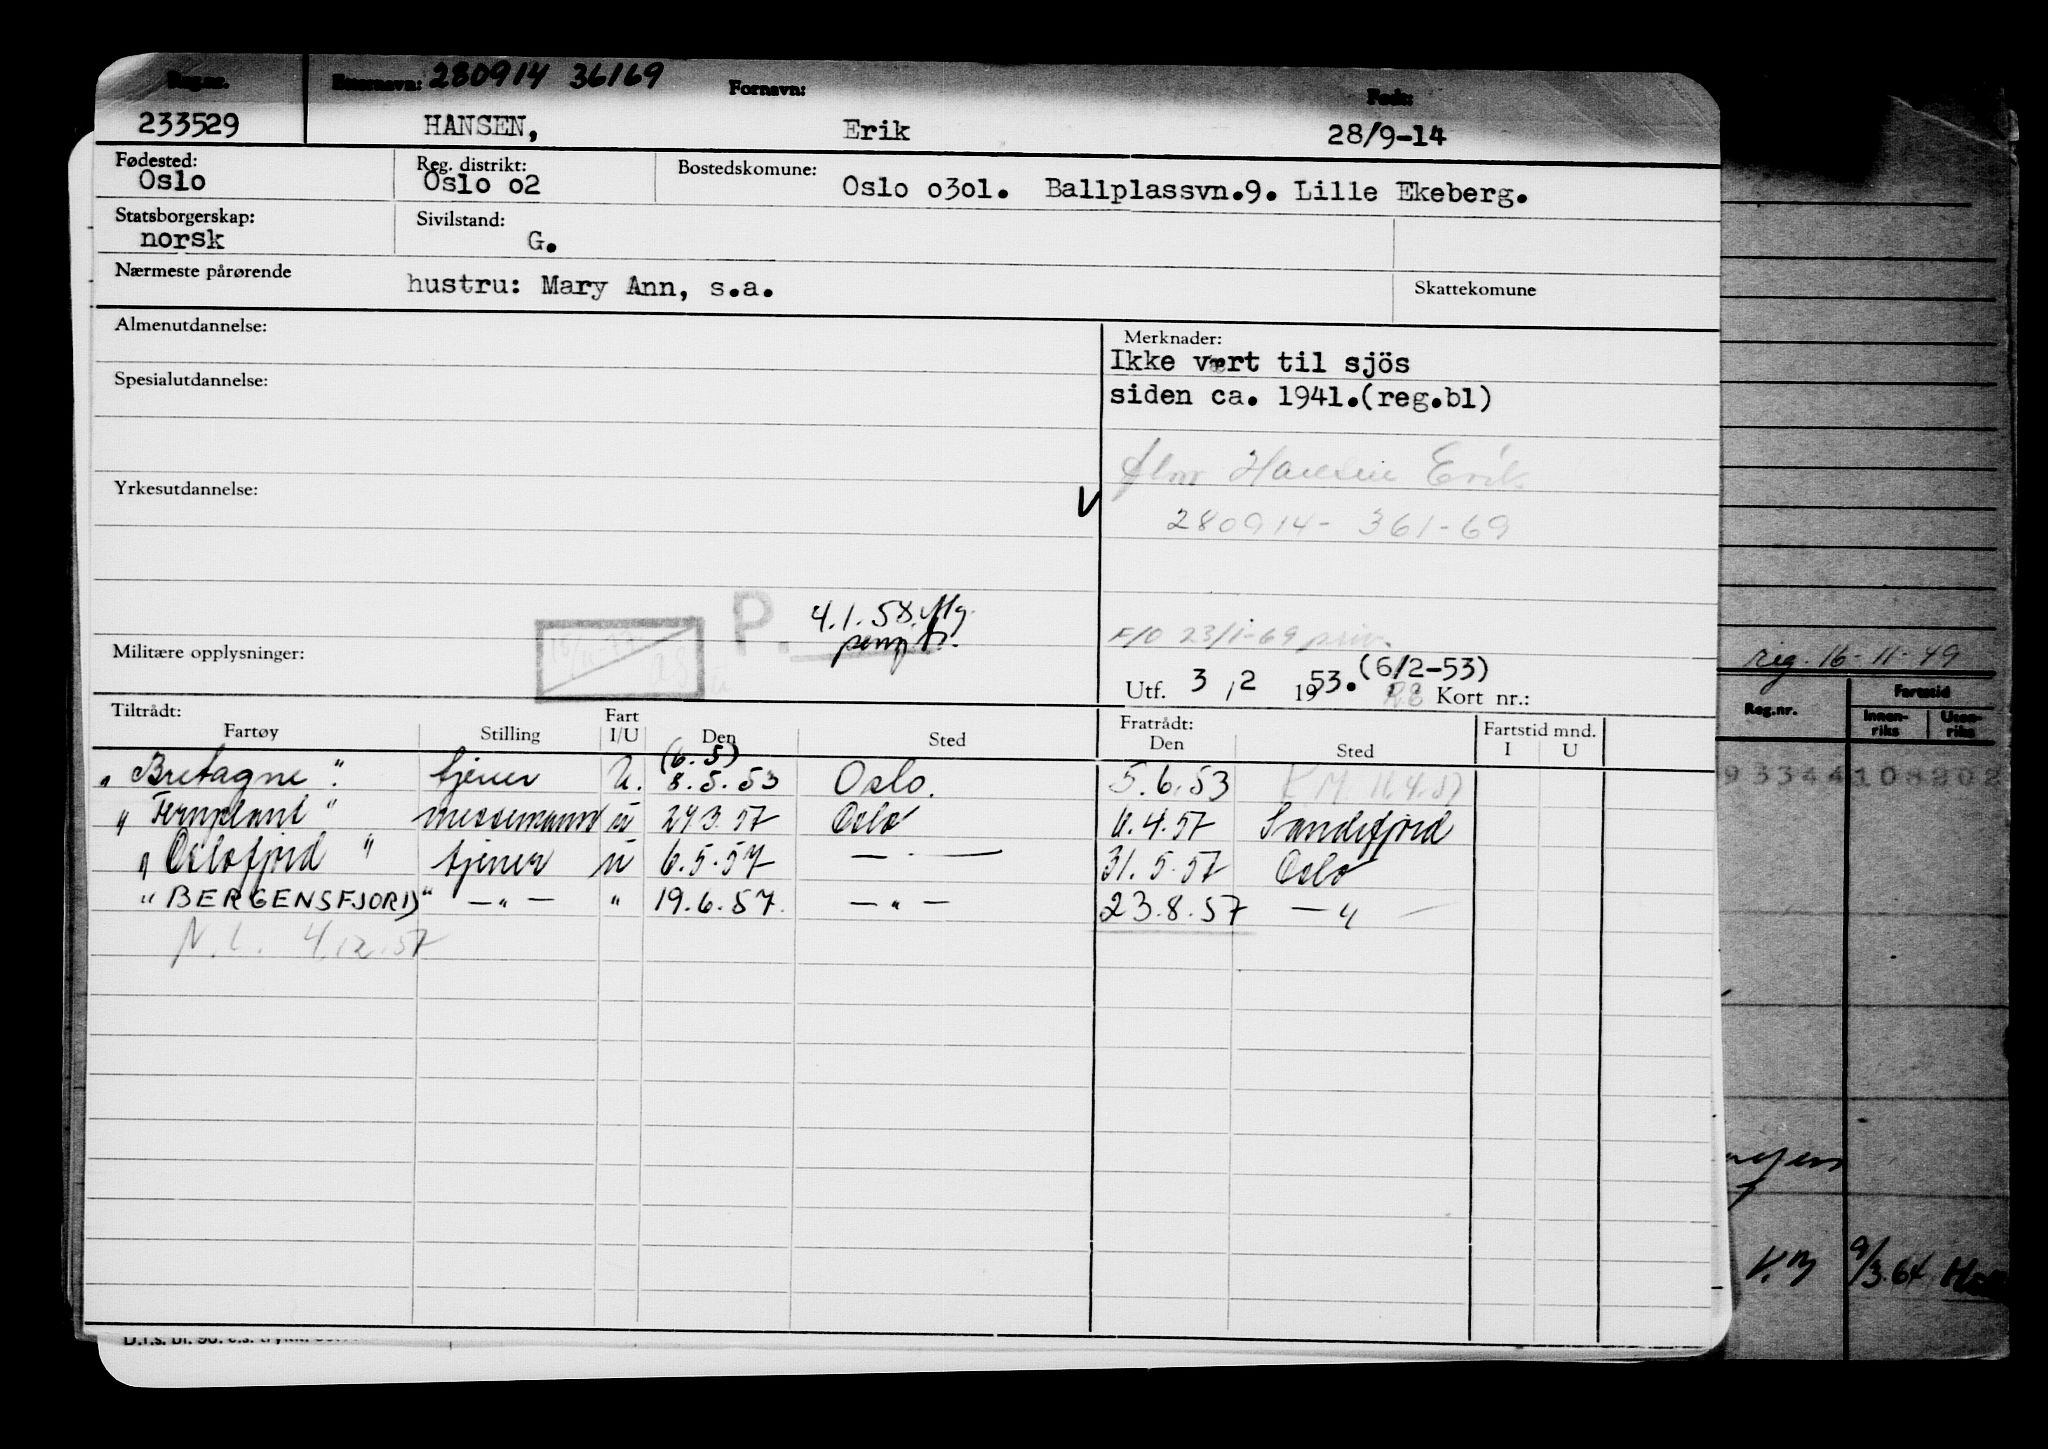 Reg.nr. Etternavn: 280914 36169 Fornavn: Født:
233529 HANSEN, Erik 28/9-14
Fødested: Reg. distrikt: Bostedskomune:
Oslo Oslo o2 Oslo o3o1. Ballplassvn.9. Lille Ekeberg.
Statsborgerskap: Sivilstand:
norsk G.
Nærmeste pårørende hustru: Mary Ann, s.a. Skattekomune
Almenutdannelse: Merknader:
Ikke vært til sjös
Spesialutdannelse: siden ca. 1941.(reg.bl)
Hansen Erik
Yrkesutdannelse: V
280914- 361-69
P. 4.1.58.
F/O 23/1-69 priv.
Militære opplysninger:
Utf. 3 / 2 1953. (6/2-53) Kort nr.:
Tiltrådt: Fart Fratrådt: Fartstid mnd.
Fartøy Stilling I/U Den Sted Den Sted I U
(6.5)
"Bretagne". tjener U. 8.5.53 Oslo. 5.6.53 K.M. 11.4.57
"Fernplant" messemann u 293.57 Oslo 11.4.57 Sandefjord
"Oslofjord" tjener u 6.5.57 — . — 31.5.57 Oslo
"BERGENSFJORD" — " — " 19.6.57. — " — 23.8.57 — " —
N.L. 4.12.57
reg. 16-11-49
Reg.nr. Fartstid
Innen-riks Uten-riks
93344108202
K.M 9/3.64